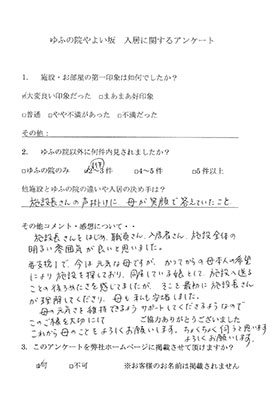 ゆふの院やよい坂　入居に関するアンケート
1. 施設・お部屋の第一印象は如何でしたか？
大変良い印象だった □まあまあ好印象
□普通 □やや不満があった □不満だった
その他：
2. ゆふの院以外に何件内見されましたか？
□ゆふの院のみ 2～3件 □4～5件 □5件以上
他施設とゆふの院の違いや入居の決め手は？
施設長さんの声掛けに 母が笑顔で答えていたこと
その他コメント・感想について・・
施設長さんをはじめ、職員さん、入居者さん、施設全体の
明るい雰囲気が良いと思いました。
要支援1で、今は元気な母ですが、かつてからの母本人の希望
により施設を探しており、同居している娘として、施設へ送る
ことの後ろめたさを感じてましたが、そこと最初に施設長さん
が理解してくださり、母も私も安心しました。
母の元気さを維持できるようサポートしてくださるようなので
このご縁を大切にして ご協力ありがとうございました
これから母のことをよろしくお願いします。ちょくちょく伺うと思います
よろしくお願いします。
3. このアンケートを弊社ホームページに掲載させて頂けますか？
可 □不可 ※お客様のお名前は掲載されません